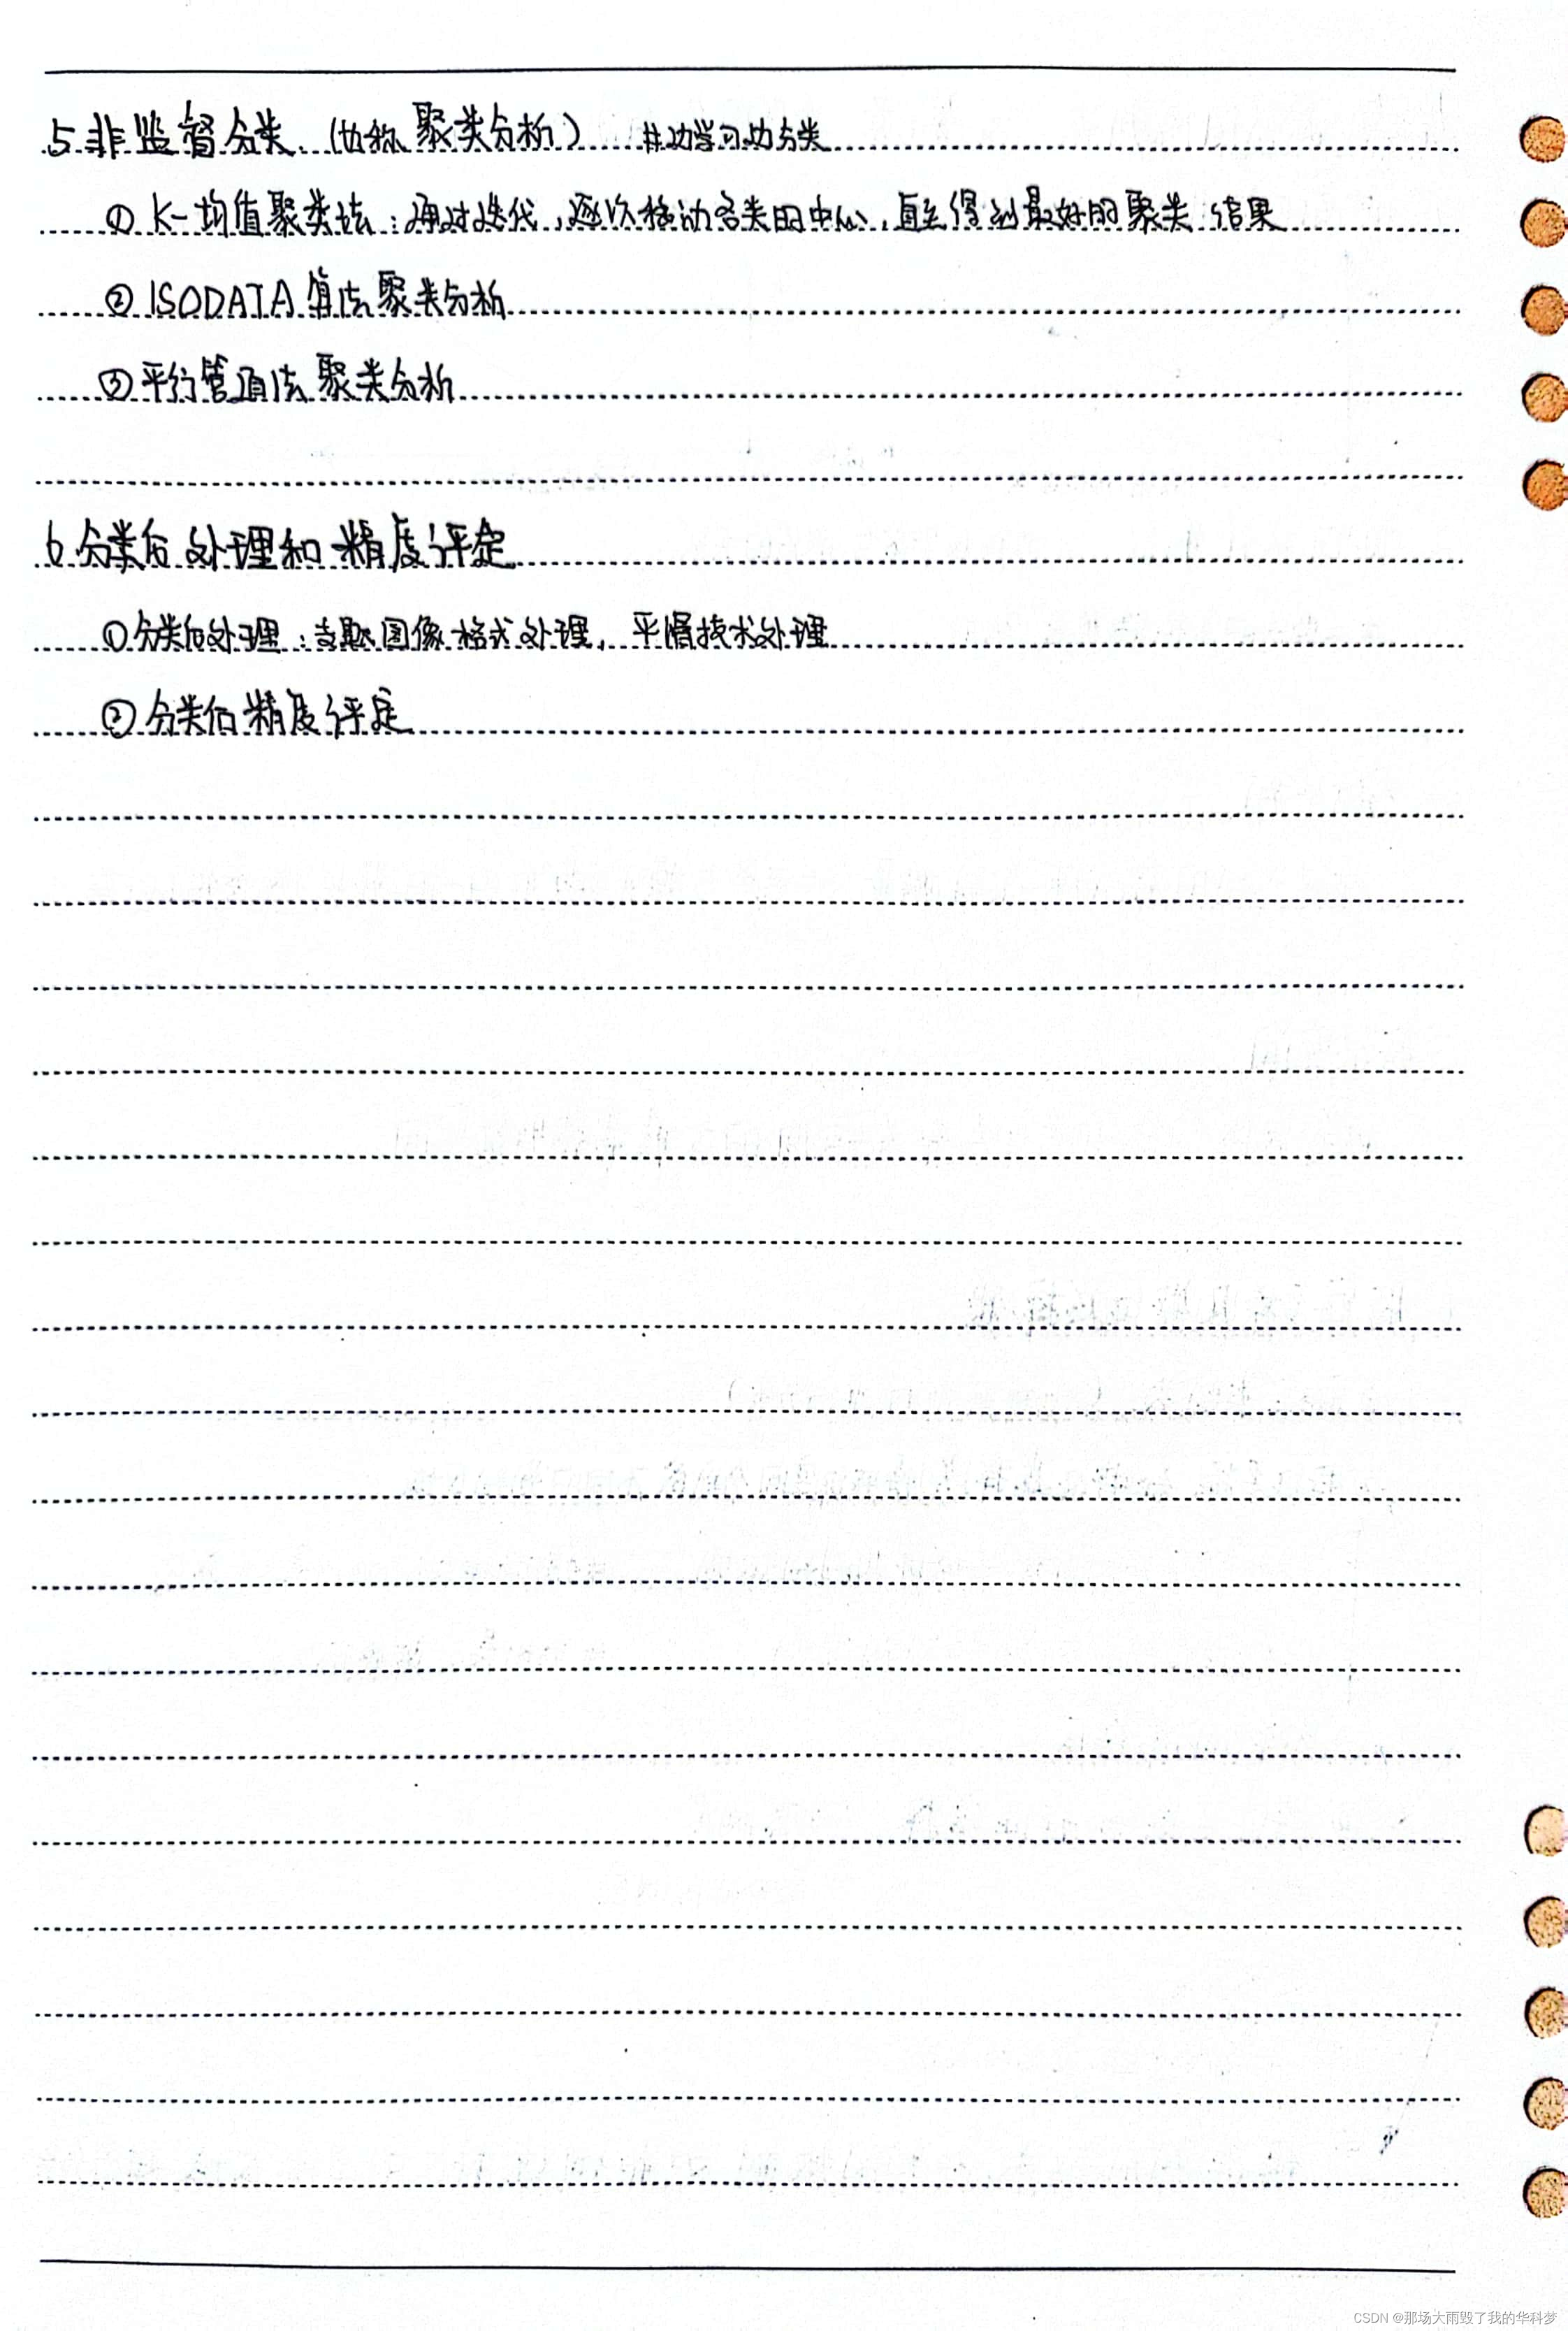 5.非监督分类 (也称聚类分析) 边学习边分类
① K-均值聚类法:通过迭代,逐次移动各类的中心,直至得到最好的聚类结果
② ISODATA 算法聚类分析
③ 平行管道法聚类分析
6.分类后处理和精度评定
① 分类后处理:专题图像格式处理,平滑技术处理
② 分类后精度评定
CSDN @那场大雨毁了我的华科梦